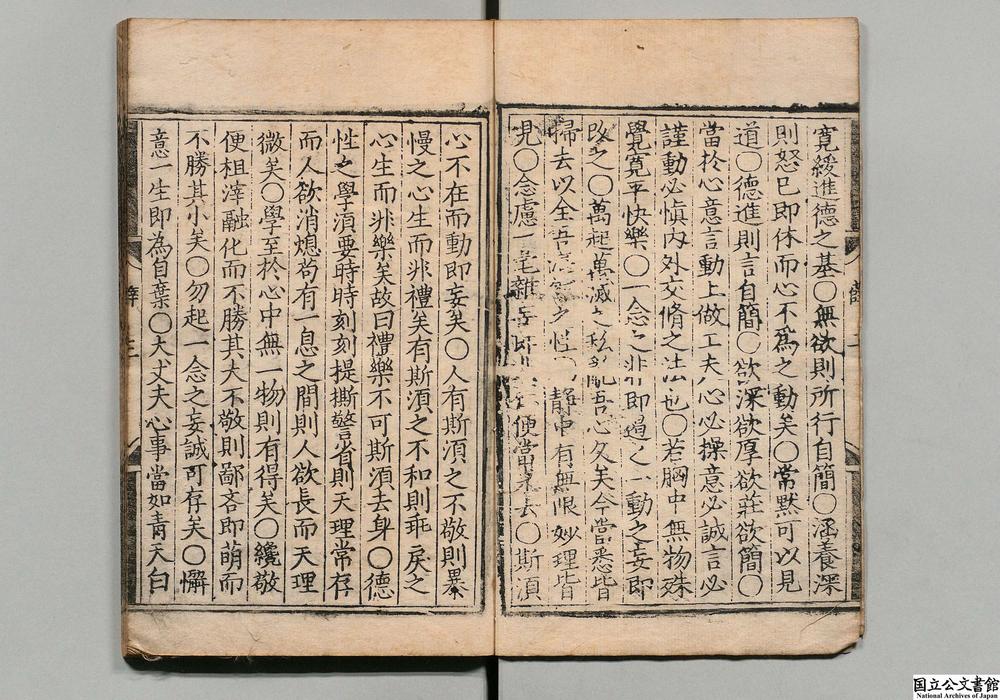 寛緩進德之基〇無欲則所行自簡〇涵養深
則怒已即休而心不為之動矣〇常黙可以見
道〇德進則言自簡〇欲深欲厚欲莊欲簡〇
當於心意言動上做工夫心必操意必誠言必
謹動必慎内外交脩之法也〇若胸中無物殊
覺寛平快樂〇一念之非即遏之一動之妄即
改之〇萬起萬滅之亂吾心久矣今當悉皆
掃去以全吾之性 静中有無限妙理皆
見〇念慮一毫雜 便當 去〇斯須
心不在而動即妄矣〇人有斯須之不敬則㬥
慢之心生而非禮矣有斯須之不和則乖戾之
心生而非樂矣故曰禮樂不可斯須去身〇德
性之學湏要時時刻刻提撕警省則天理常存
而人欲消熄苟有一息之間則人欲長而天理
微矣〇學至於心中無一物則有得矣〇纔敬
便柤滓融化而不勝其大不敬則鄙吝即萠而
不勝其小矣〇勿起一念之妄誠可存矣〇懈
意一生即為自棄〇大丈夫心事當如青天白
國立公文書館
National Archives of Japan